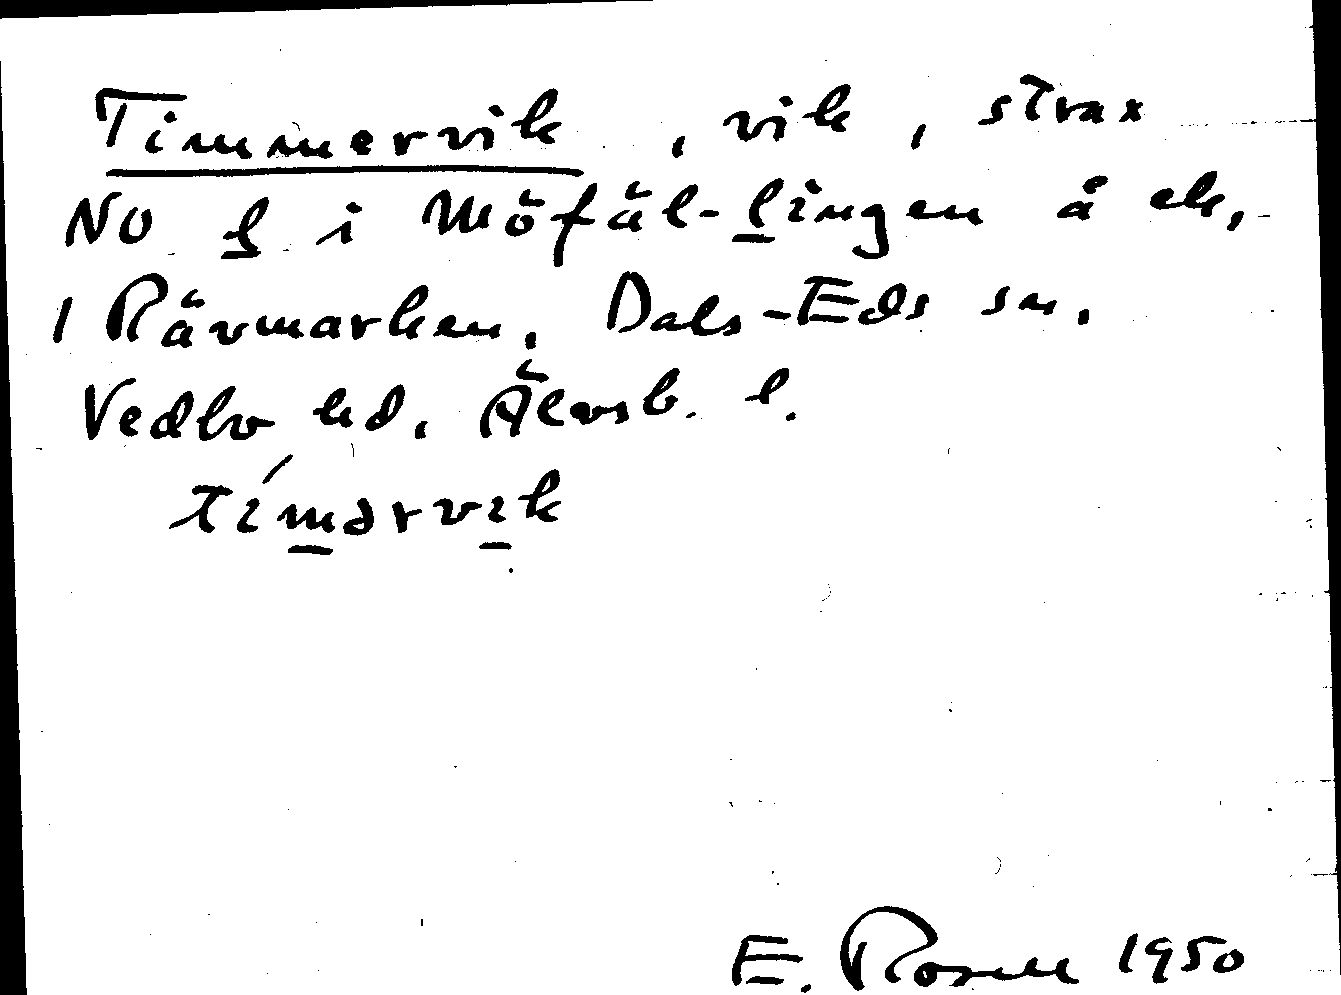 Timmervik, vik, strax
NO l i Möfäl-lingen å ek,
1 Rävmarken, Dals-Eds sn.
Vedbo hd, Älvsb. l.
tímərvik
E. Rosell 1950